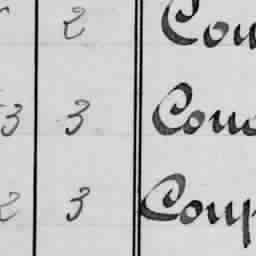 2 Cou
3 3 Cou
2 3 Coup